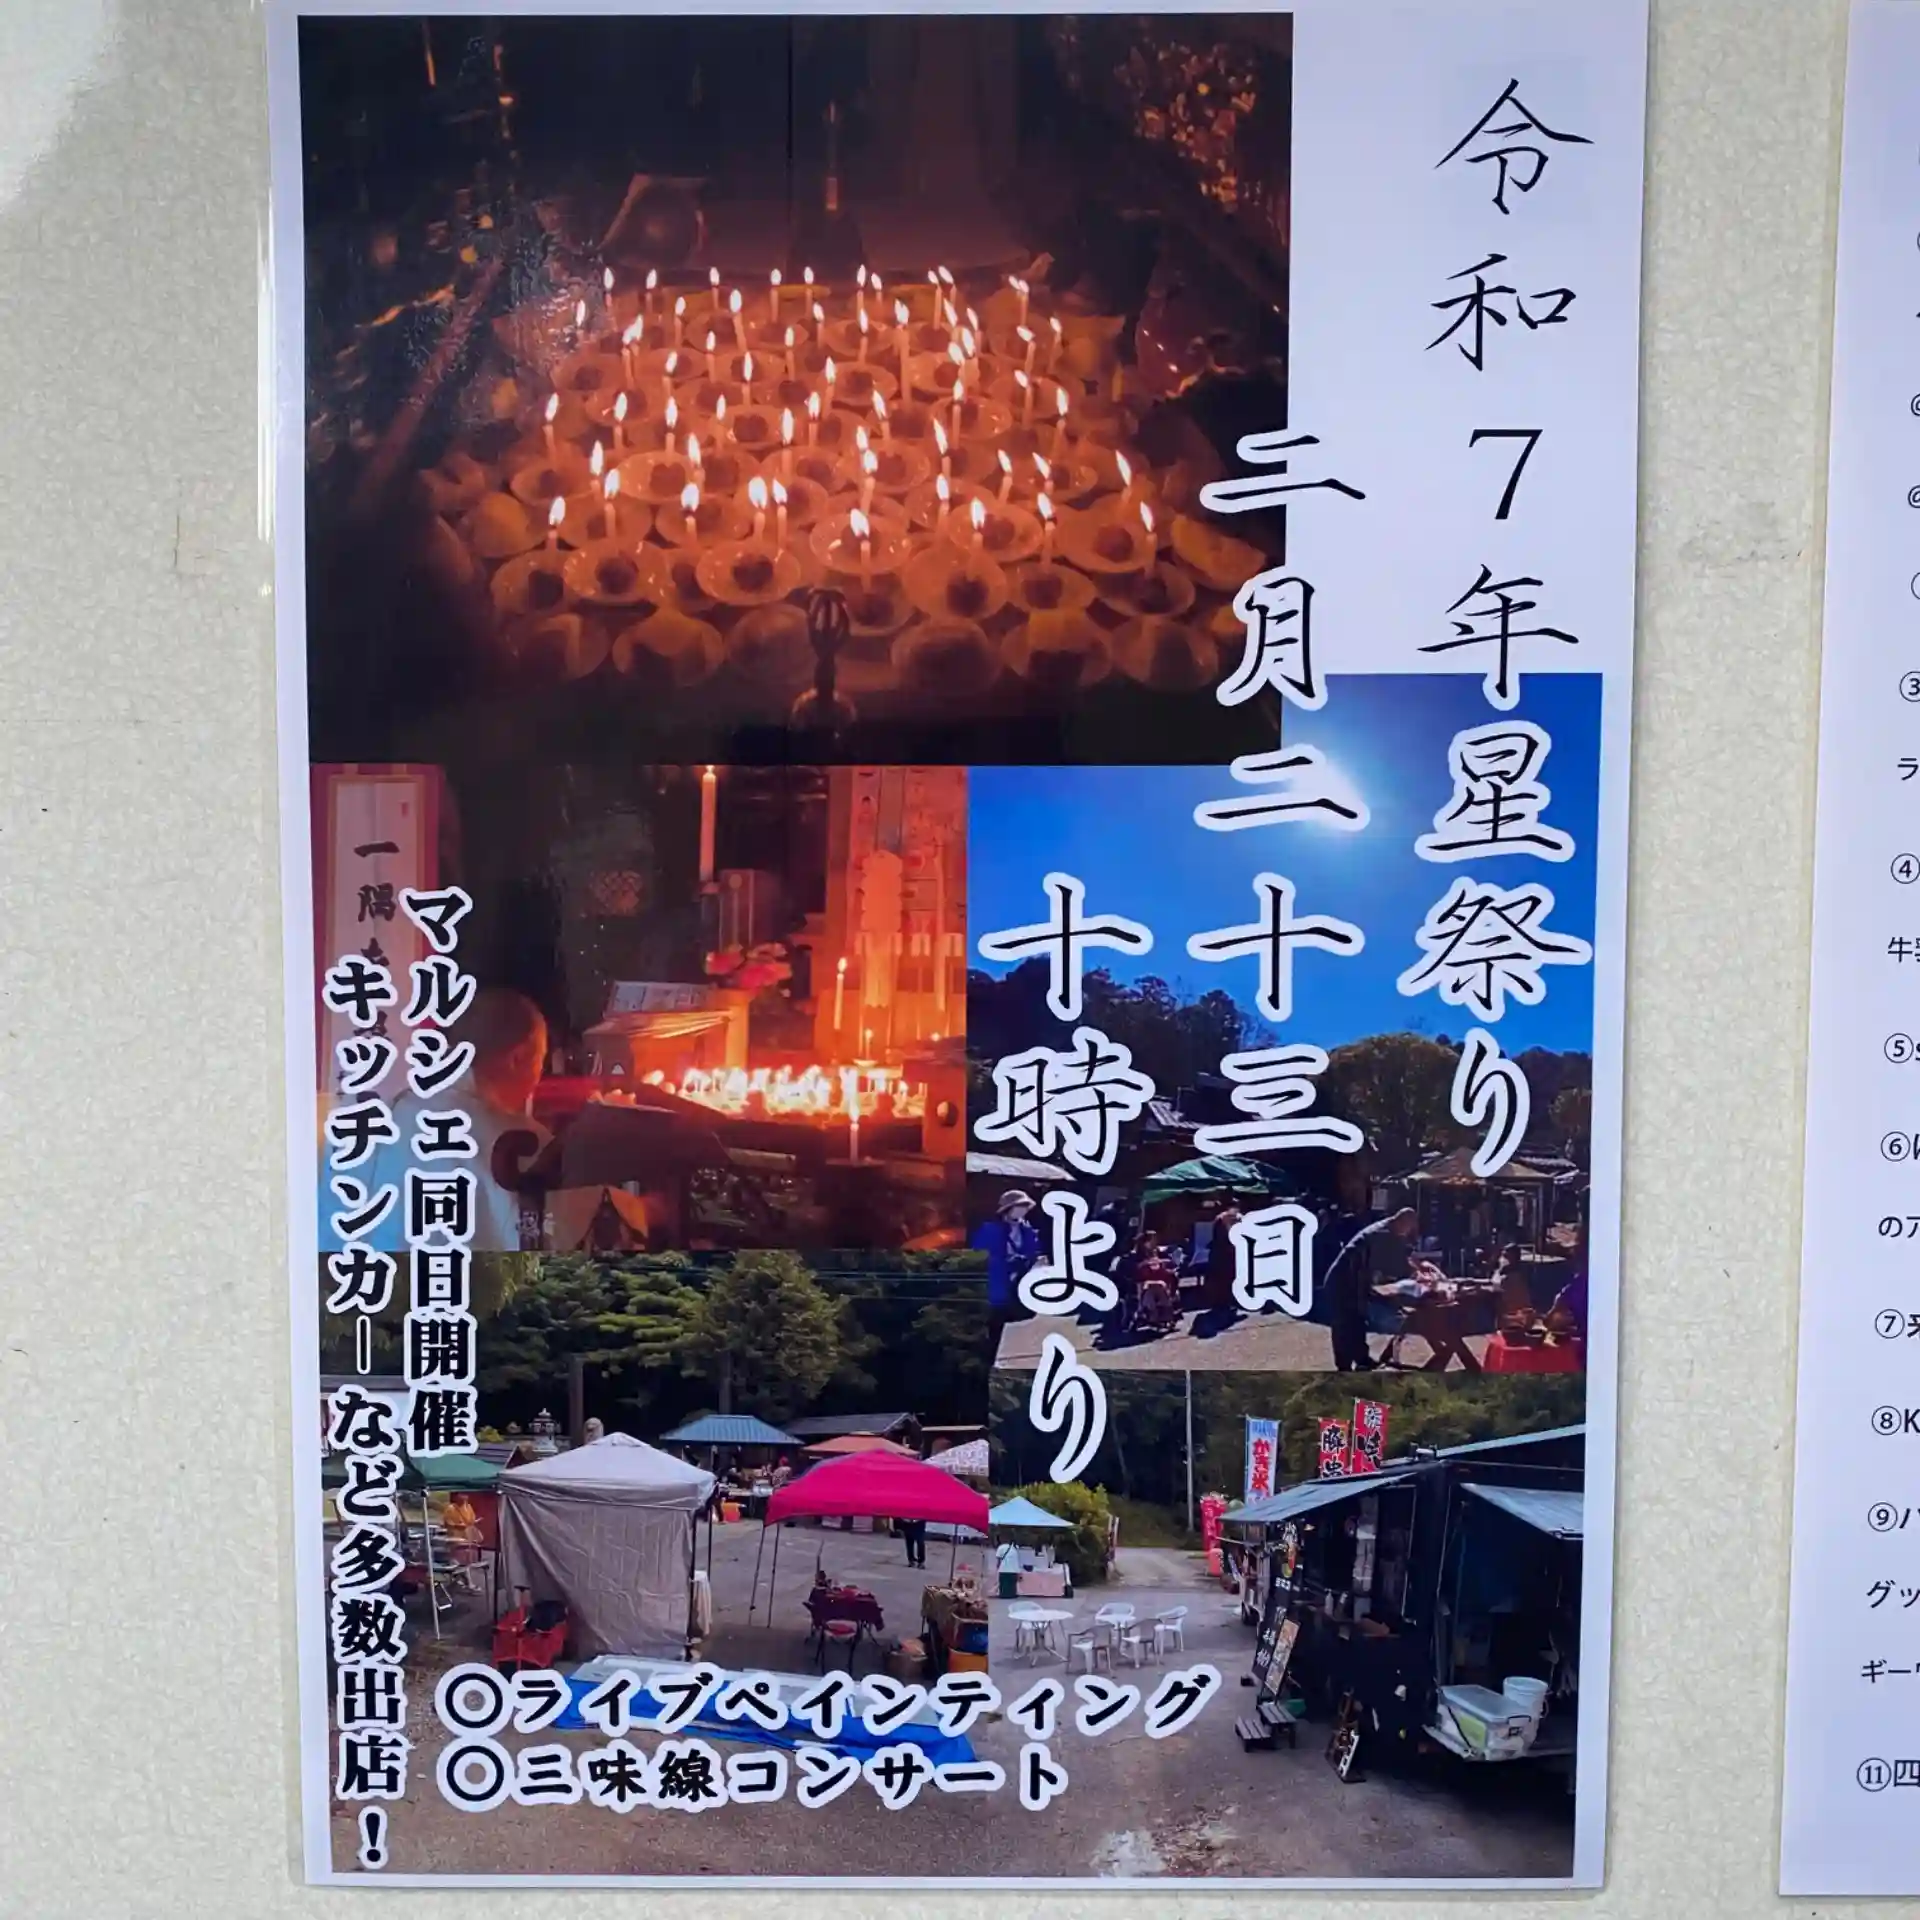 令和7年星祭り
二月二十三日
十時より
一隅
マルシェ同日開催
キッチンカーなど多数出店！
〇ライブペインティング
〇三味線コンサート
③
ラ
④
牛
⑤s
⑥
のア
⑦
⑧K
⑨ハ
グッ
ギー
⑪四